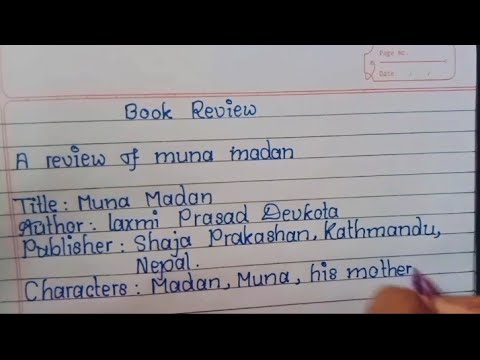 Page No.
Date
Book Review
A review of muna madan
Title : Muna Madan
Author : Laxmi Prasad Devkota
Publisher : Shaja Prakashan, Kathmandu,
Nepal.
Characters : Madan, Muna, his mother